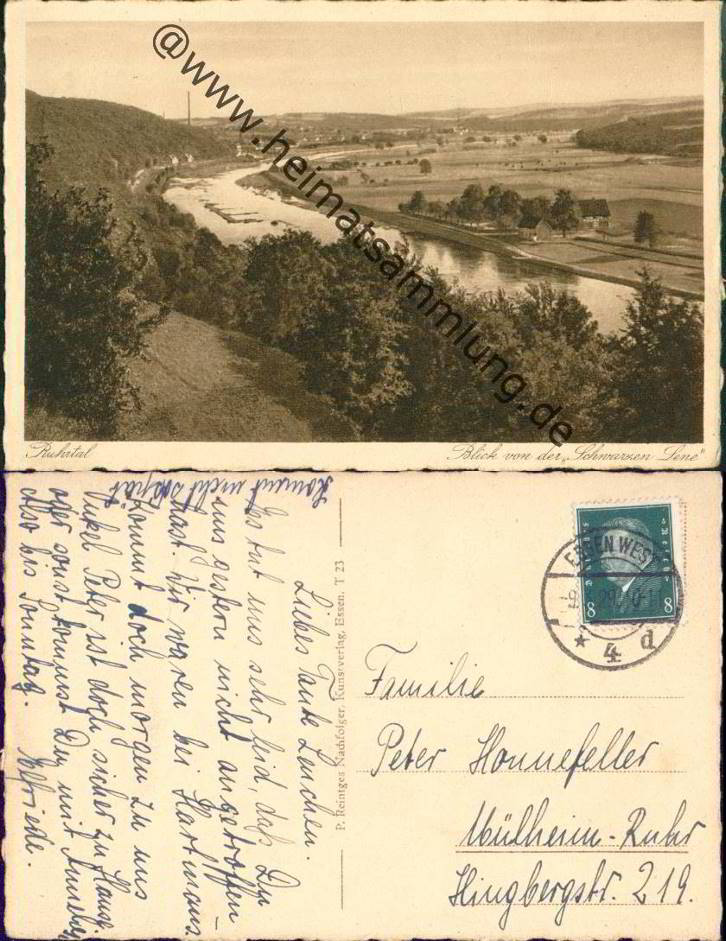 @www.heimatsammlung.de
Ruhrtal
Blick von der „Schwarzen Lene“
Kommt nicht so spät
Liebes Tant Lenchen.
Es tut uns sehr leid, daß Du
uns gestern nicht angetroffen
hast. Wir waren bei Hartmaus
kommt doch morgen zu uns
Onkel Peter ist doch sicher zu Hause
oder sonst kommst Du mit
also bis Sonntag.
Elfriede.
P. Reintges Nachfolger, Kunstverlag, Essen. T 23
ESSEN WEST
8 8
* 4 d
Familie
Peter Honnefeller
Mülheim-Ruhr
Hingbergstr. 219.